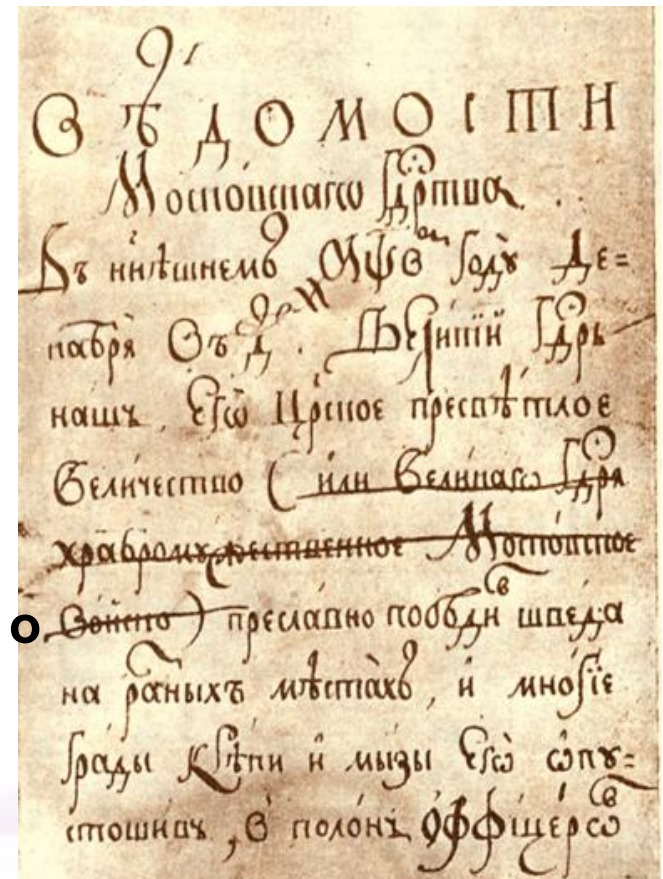 Вѣдомости
Московскагѡ Гдрⷭтва
Въ нн҃ѣшнемъ ҂аѱв ᲂᲂм году де=
кабря въ Великїй Гдрь
нашъ, Егѡ Црⷭкое пресвѣтлое
Величество ( или Великагѡ Гдря
храбромужественное Московское
о Войско ) преславно побѣди шведа
на разныхъ мѣстахъ, и многїе
грады крѣпки и мызы Егѡ ѡпу=
стошивъ, в полонъ оффицерѡв